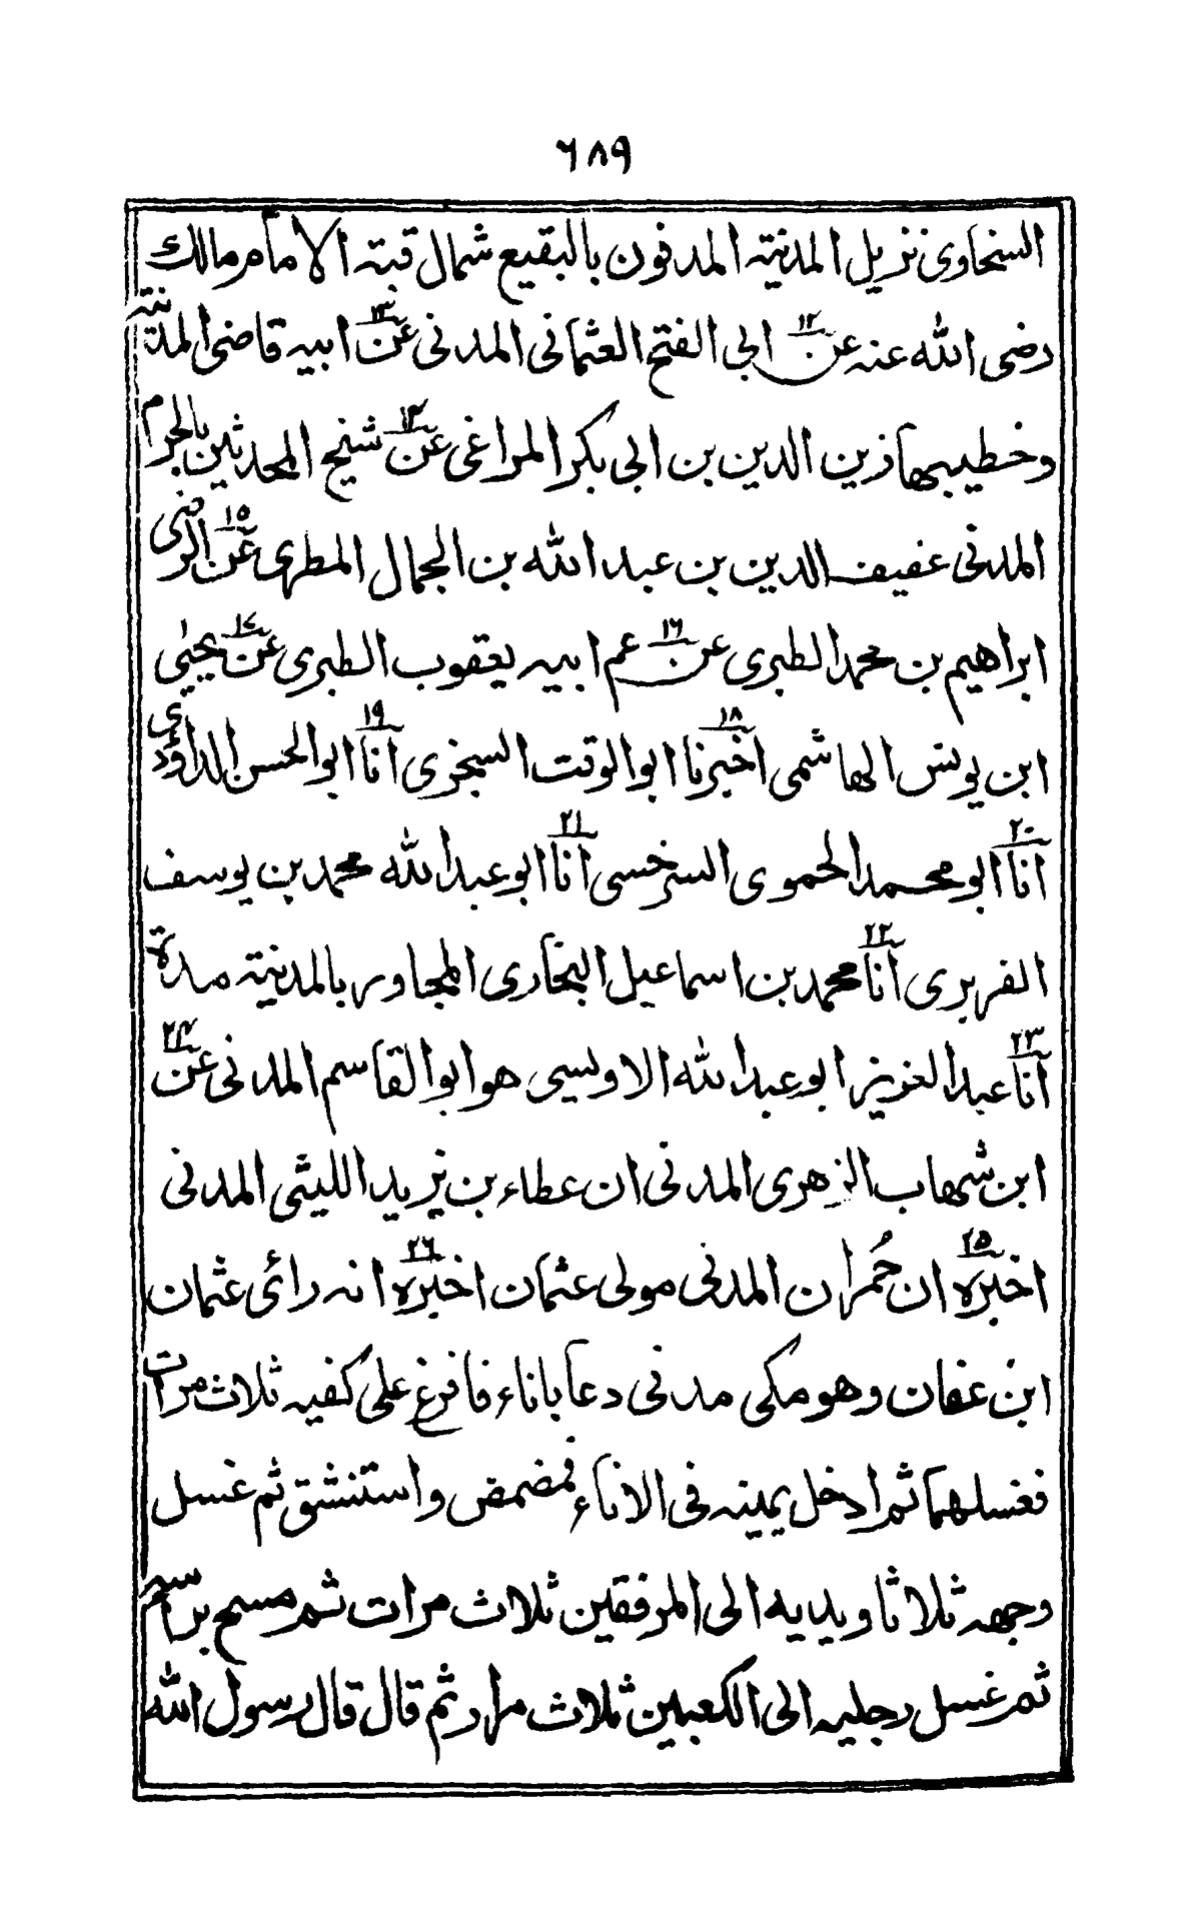 ٦٨٩
السخاوى نزيل المدينة المدفون بالبقيع شمال قبة الامام مالك
رضى الله عنه عن ١٢ ابى الفتح العثمانى المدنى عن ١٣ ابيه قاضى المدينة
وخطيبها زين الدين بن ابى بكر المراغى عن ١٤ شيخ المحدثين بالحرم
المدنى عفيف الدين بن عبد الله بن الجمال المطرى عن ١٥ الرضى
ابراهيم بن محمد الطبرى عن ١٦ عم ابيه يعقوب الطبرى عن ١٧ يحيٰى
ابن يونس الهاشمى اخبرنا ١٨ ابو الوقت السجزى انا ١٩ ابو الحسن الداؤدى
انا ٢٠ ابو محمد الحموى السرخسى انا ٢١ ابو عبد الله محمد بن يوسف
الفربرى انا ٢٢ محمد بن اسماعيل البخارى المجاور بالمدينة مدة
انا ٢٣ عبد العزيز ابو عبد الله الاويسى هو ابو القاسم المدنى عن ٢٤
ابن شهاب الزهرى المدنى ان عطاء بن يزيد الليثى المدنى
اخبره ٢٥ ان حُمران المدنى مولى عثمان اخبره ٢٦ انه رائ عثمان
ابن عفان وهو مكى مدنى دعا باناء فافرغ على كفيه ثلاث مرات
فغسلهما ثم ادخل يمينه فى الاناء فمضمض واستنشق ثم غسل
وجهه ثلاثا ويديه الى المرفقين ثلاث مرات ثم مسح براسه
ثم غسل رجليه الى الكعبين ثلاث مرار ثم قال قال رسول الله